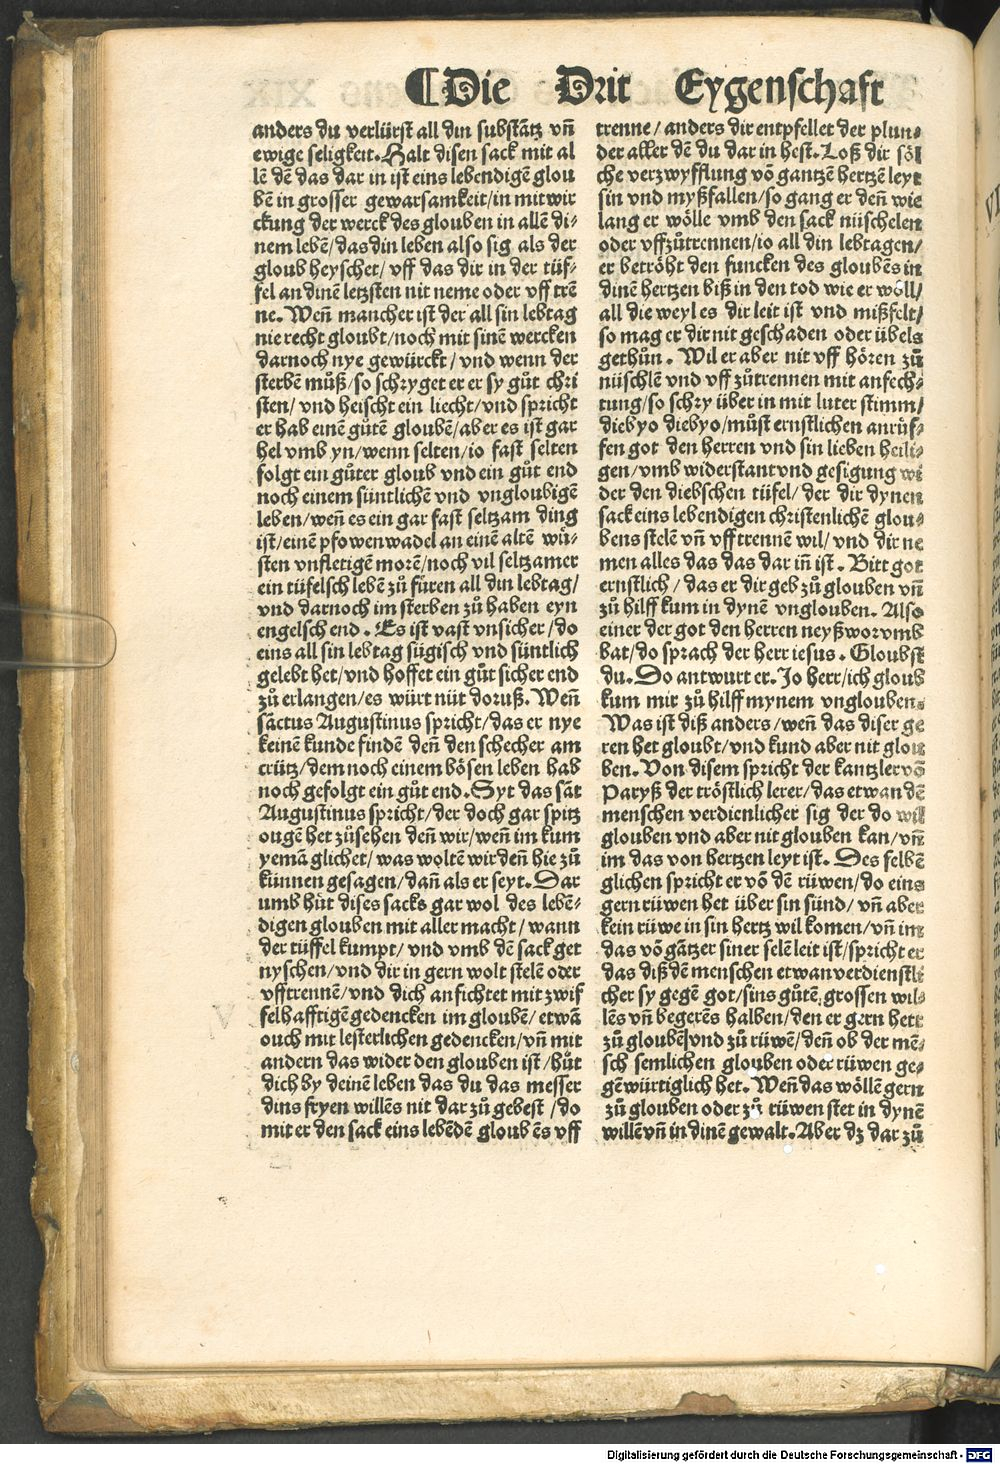 ¶Die Drit Eygenschaft
anders du verlürst all din substātz vn̄
ewige seligkeit. Halt disen sack mit al
lē dē das dar in ist eins lebendigē glou
bē in grosser gewarsamkeit/in mitwir
ckung der werck des glouben in allē di-
nem lebē/das din leben also sig als der
gloub heyschet/vff das dir in der tüf-
fel an dinē letzsten nit neme oder vff trē
ne. Wen̄ mancher ist der all sin lebtag
nie recht gloubt/noch mit sinē wercken
darnoch nye gewürckt/vnd wenn der
sterbē můß/so schryget er er sy gůt chri
sten/vnd heischt ein liecht/vnd spricht
er hab einē gůtē gloubē/aber es ist gar
hel vmb yn/wenn selten/io fast selten
folgt ein gůter gloub vnd ein gůt end
noch einem süntlichē vnd vngloubigē
leben/wen̄ es ein gar fast seltzam ding
ist/einē pfowenwadel an einē altē wů-
sten vnfletigē morē/noch vil seltzamer
ein tüfelsch lebē zů fůren all din lebtag/
vnd darnoch im sterben zů haben eyn
engelsch end. Es ist vast vnsicher/do
eins all sin lebtag sügisch vnd süntlich
gelebt het/vnd hoffet ein gůt sicher end
zů erlangen/es würt nüt doruß. Wen̄
sāctus Augustinus spricht/das er nye
keinē kunde findē den̄ den schecher am
crütz/dem noch einem bösen leben hab
noch gefolgt ein gůt end. Syt das sāt
Augustinus spricht/der doch gar spitz
ougē het zůsehen den̄ wir/wen̄ im kum
yemā glichet/was woltē wir den̄ hie zů
künnen gesagen/dan̄ als er seyt. Dar
umb hůt dises sacks gar wol des lebē-
digen glouben mit aller macht/wann
der tüffel kumpt/vnd vmb dē sack get
nyschen/vnd dir in gern wolt stelē oder
vfftrennē/vnd dich anfichtet mit zwif
felhafftigē gedencken im gloubē/etwā
ouch mit lesterlichen gedencken/vn̄ mit
andern das wider den glouben ist/hůt
dich by deinē leben das du das messer
dins fryen willēs nit dar zů gebest/do
mit er den sack eins lebēdē gloubēs vff
trenne/anders dir entpfellet der plun-
der aller dē du dar in hest. Loß dir söl
che verzwyfflung vō gantzē hertzē leyt
sin vnd myßfallen/so gang er den̄ wie
lang er wölle vmb den sack nüschelen
oder vffzůtrennen/io all din lebtagen/
er betröht den funcken des gloubēs in
dinē hertzen biß in den tod wie er wöll/
all die weyl es dir leit ist vnd mißfelt/
so mag er dir nit geschaden oder übels
gethůn. Wil er aber nit vff hören zů
nüschlē vnd vff zůtrennen mit anfech-
tung/so schry über in mit luter stimm/
diebyo diebyo/můst ernstlichen anrůf-
fen got den herren vnd sin lieben heili-
gen/vmb widerstant vnd gesigung wi
der den diebschen tüfel/der dir dynen
sack eins lebendigen christenlichē glou-
bens stelē vn̄ vfftrennē wil/vnd dir ne
men alles das das dar in̄ ist. Bitt got
ernstlich/das er dir geb zů glouben vn̄
zů hilff kum in dynē vnglouben. Also
einer der got den herren neyßwor vmb
bat/do sprach der herr iesus. Gloubst
du. Do antwurt er. Jo herr/ich gloub
kum mir zů hilff mynem vnglouben.
Was ist diß anders/wen̄ das diser ge
ren het gloubt/vnd kund aber nit glou
ben. Von disem spricht der kantzler vō
Paryß der tröstlich lerer/das etwan dē
menschen verdienlicher sig der do wil
glouben vnd aber nit glouben kan/vn̄
im das von hertzen leyt ist. Des selbē
glichen spricht er vō dē rüwen/do eins
gern rüwen het über sin sünd/vn̄ aber
kein rüwe in sin hertz wil komen/vn̄ im
das vō gātzer siner selē leit ist/spricht er
das diß dē menschen etwan verdienstli
cher sy gegē got/sins gůtē grossen wil-
lēs vn̄ begerēs halben/den er gern hett
zů gloubē/vnd zů rüwē/den̄ ob der mē-
sch semlichen glouben oder rüwen ge-
gēwürtiglich het. Wen̄ das wöllē gern
zů glouben oder zů rüwen stet in dynē
willē vn̄ in dinē gewalt. Aber dz dar zů
Digitalisierung gefördert durch die Deutsche Forschungsgemeinschaft - DFG